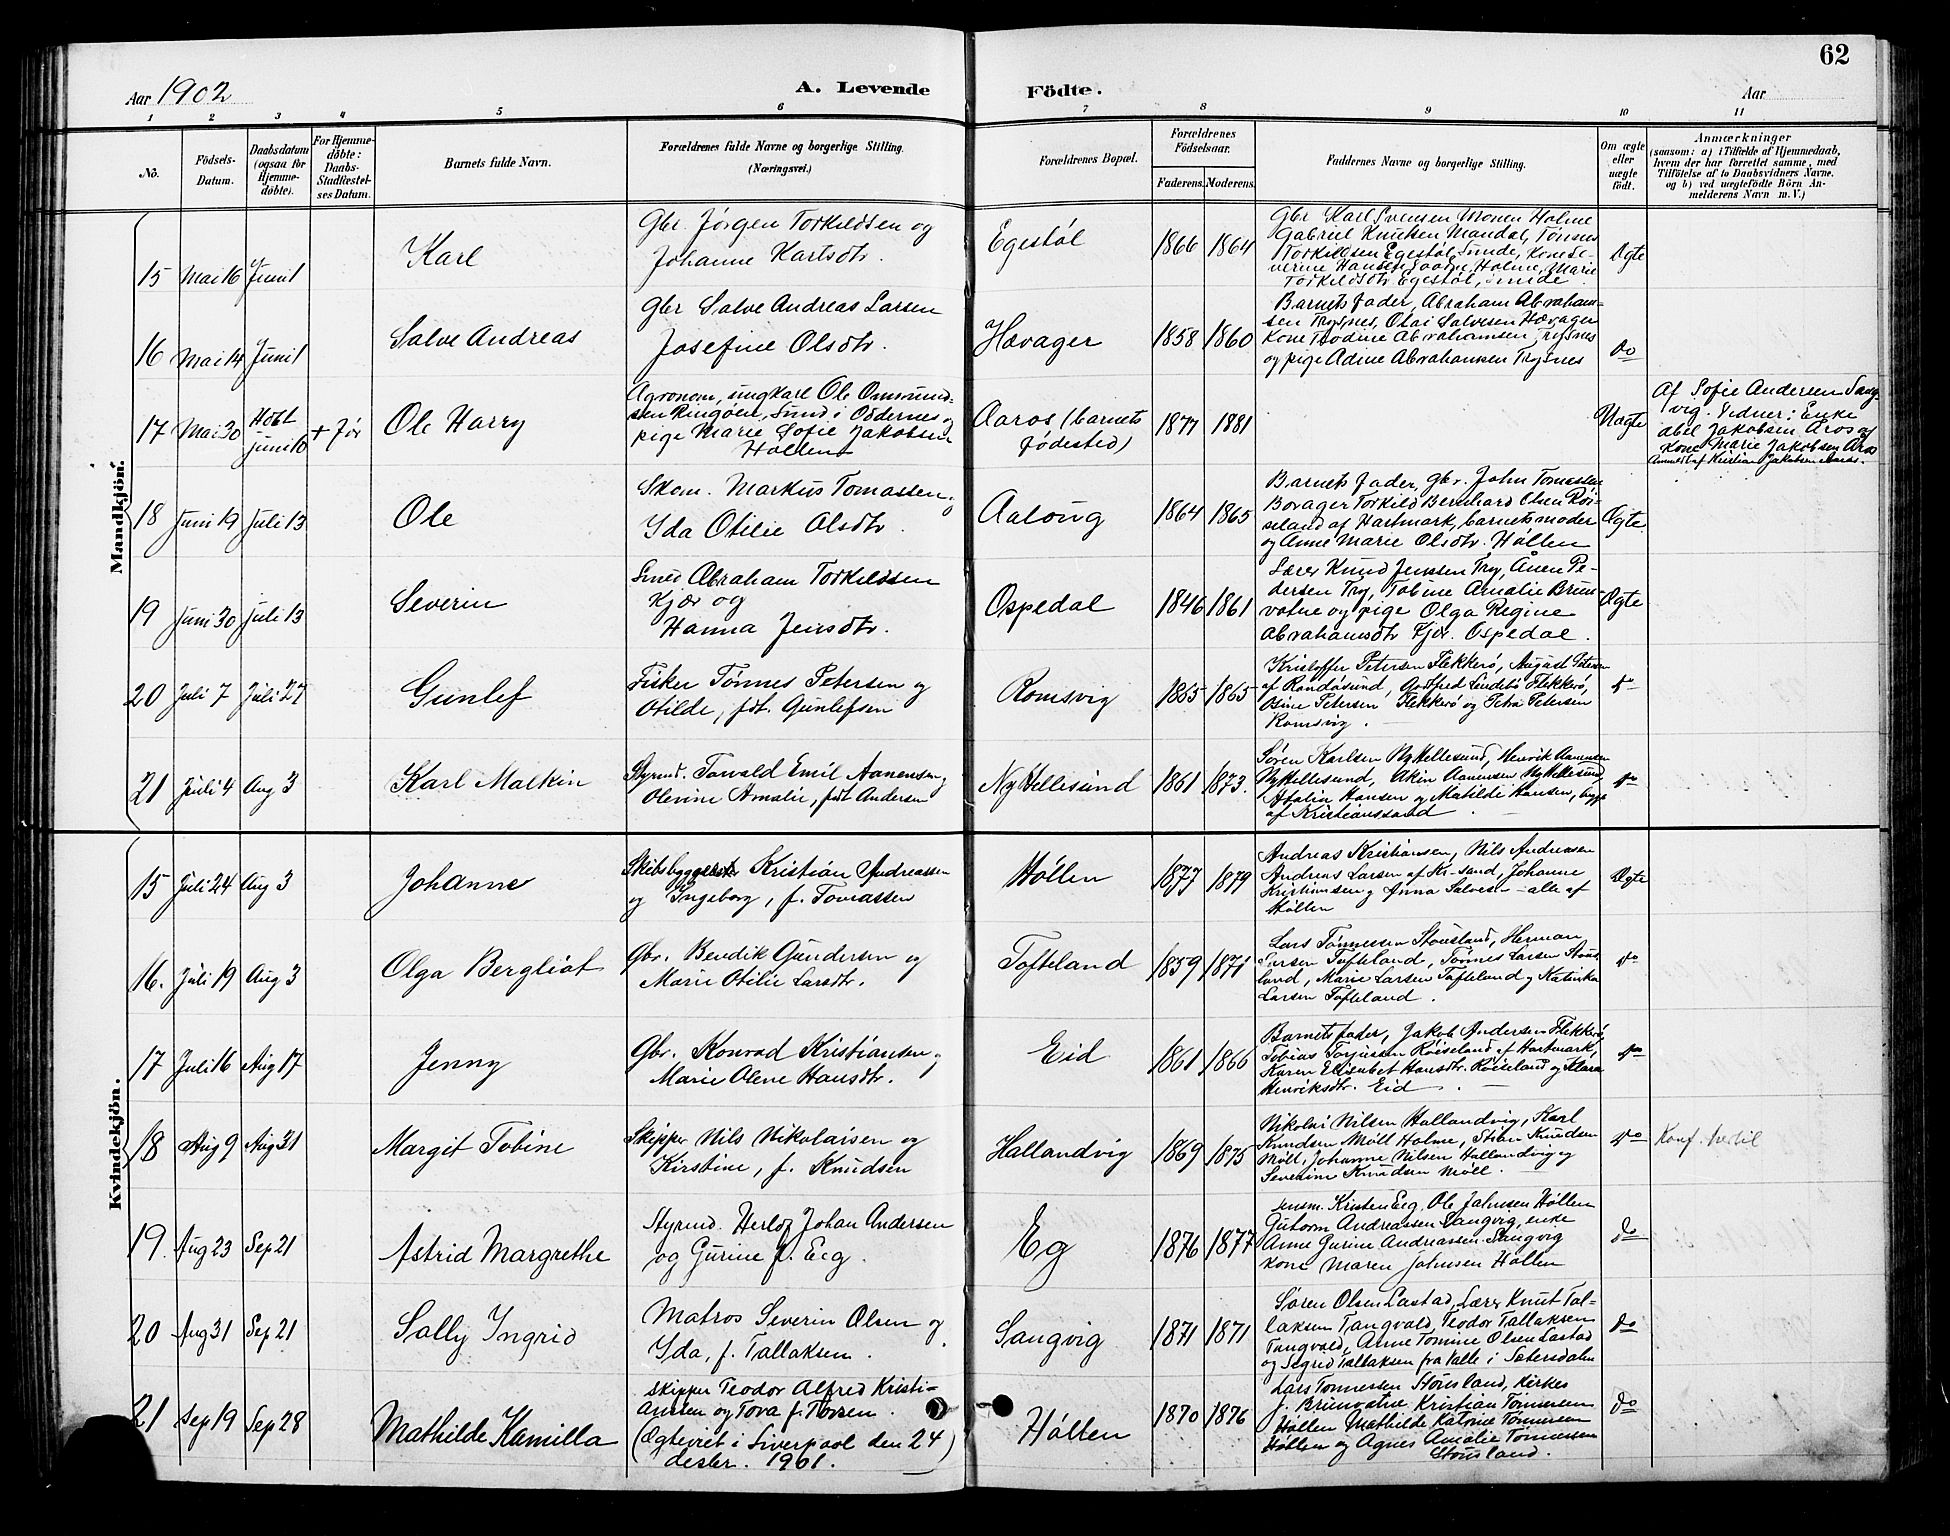 62
Aar 1902
A. Levende Födte.
Aar
1 2 3 4 5 6 7 8 9 10 11
No.
Födsels-Datum.
Daabsdatum (ogsaa for Hjemme-döbte).
For Hjemme-döbte: Daabs-Stadfæstel-ses Datum.
Barnets fulde Navn.
Forældrenes fulde Navne og borgerlige Stilling. (Næringsvei.)
Forældrenes Bopæl.
Forældrenes Födselsaar.
Faderens. Moderens.
Faddernes Navne og borgerlige Stilling.
Om ægte eller uægte födt.
Anmærkninger
(saasom: a) i Tilfælde af Hjemmedaab, hvem der har forrettet samme, med Tilföielse af to Daabsvidners Navne. og b) ved uægtefödte Börn Anmelderens Navn m. V.)
Mandkjön.
15 Mai 16 Juni 1 Karl
Gbr Jörgen Torkildsen og
Johanne Karlsdtr.
Egestøl 1866 1864
Gbr Karl Svensen Monen Holme
Gabriel Knutsen Mandal, Tønnes
Torkildsen Egestøl, Sunde, Kone Se-
verine Hansen Holme, Marie
Torkildsdtr Egestøl, Sunde.
Ægte
16 Mai 14 Juni 1 Salve Andreas
Gbr Salve Andreas Larsen
Josefine Olsdtr.
Hævager 1858 1860
Barnets fader, Abraham Abraham-
sen Trysnes, Olai Salvesen Hævager
Kone Teodine Abrahamsen, Trysnes
og pige Adine Abrahamsen Trysnes
do
17 Mai 30 Hdbt juni 10 + før Ole Harry
Agronom, ungkarl Ole Omsund-
sen Ringøen, Sund i Oddernes og
pige Marie Sofie Jakobsen
Høllen
Aaros (barnets
fødested) 1877 1881
Uægte
Af Sofie Andersen Sang
vig. Vidner: Enke
Abel Jakobsen Aros og
Kone Marie Jakobsen Aros
Anmeldt af Kristian Jakobsen Aaros.
18 Juni 19 Juli 13 Ole
Skom. Markus Tomassen og
Ida Otilie Olsdtr.
Aalong 1864 1865
Barnets fader, Gbr. John Tomassen
Bovager Torkild Bernhard Olsen Røi-
seland af Hartmark, barnets moder
og Anne Marie Olsdtr. Høllen
Ægte
19 Juni 30 Juli 13 Severin
Smed Abraham Torkildsen
Kjær og
Hanna Jensdtr.
Ospedal 1846 1861
Lærer Knud Jenssen Try, Ånen Pe-
dersen Try, Tobine Amalie Brun-
vatne og pige Olga Regine
Abrahamsdtr Kjær. Ospedal.
Ægte
20 Juli 7 Juli 27 Gunlef
Fisker Tønnes Petersen og
Otilde, fdt. Gunlefsen
Romsvig 1865 1865
Kristoffer Petersen Flekkerø, August Petersen
af Randøsund, Godtfred Lindebø Flekkerø,
Oline Petersen Flekkerø og Petra Petersen
Romsvig.
do
21 Juli 4 Aug 3 Karl Malkin
Styrmd. Torvald Emil Aanensen og
Olevine Amalie, fdt Andersen
Ny Hellesund 1861 1873.
Søren Karlsen Ny Hellesund, Henrik Aanensen
Ny Hellesund, Akin Aanensen Ny Hellesund,
Atalia Hansen og Matilde Hansen, begge
af Kristianssand.
do
Kvindekjön.
15 Juli 24 Aug 3 Johanne
Skibsbygger Kristian Andreassen
og Ingeborg, f. Tomassen
Høllen 1877 1879
Andreas Kristiansen, Nils Andreasen
Andreas Larsen af Kr-sand, Johanne
Kristiansen og Anna Salvesen - alle af
Høllen
Ægte
16. Juli 19 Aug 3 Olga Bergliot
Gbr. Bendik Gundersen og
Marie Otilie Larsdtr.
Tofteland 1859 1871
Lars Tønnessen Stousland, Herman
Larsen Tofteland, Tønnes Larsen Stous
land, Marie Larsen Tofteland og Katinka
Larsen Tofteland.
do
17 Juli 16 Aug 17 Jenny
Gbr. Konrad Kristiansen og
Marie Olene Hansdtr.
Eid 1861 1866
Barnets fader, Jakob Andersen Flekkerø
Tobias Torjussen Røiseland af Hartmark,
Karen Elisabet Hansdtr. Røiseland og Klara
Henriksdtr. Eid.
do
18 Aug 9 Aug 31 Margit Tobine
Skipper Nils Nikolaisen og
Kirstine, f. Knudsen
Hallandvig 1869 1875
Nikolai Nilsen Hallandvig, Karl
Knudsen Møll Holme, Sven Knudsen
Møll, Johanne Nilsen Hallandvig og
Severine Knudsen Møll.
do
Konf.
19. Aug 23 Sep 21 Astrid Margrethe
Styrmd. Herlof Johan Andersen
og Gurine f. Eeg.
Eg 1876 1877
Kristen Eeg, Ole Jahnsen Høllen
Gutorm Andreassen Langvig, enke
Anne Gurine Andreassen Sangvig
kone Maren Jahnsen Høllen
do
20 Aug 31 Sep 21 Sally Ingrid
Matros Severin Olsen og
Ida, f. Tallaksen.
Sangvig 1871 1871
Søren Olsen Lastad, Lærer Knut Tal-
laksen Tangvald, Teodor Tallaksen
Tangvald, Anne Tomine Olsen Lastad
og Sigrid Tallaksen fra Valle i Sætersdalen
do
21 Sep 19 Sep 28 Mathilde Kamilla
Skipper Teodor Alfred Kristi-
ansen og Tora f. Torsen.
(Ægteviet i Liverpool den 24
desbr. 1901.)
Høllen 1870 1876
Lars Tønnessen Stousland, Kirkes
. Brunvatne Kristian Tønnessen
Høllen Mathilde Katrine Tønnessen
Høllen og Agnes Amalie Tønnessen
Stousland.
do